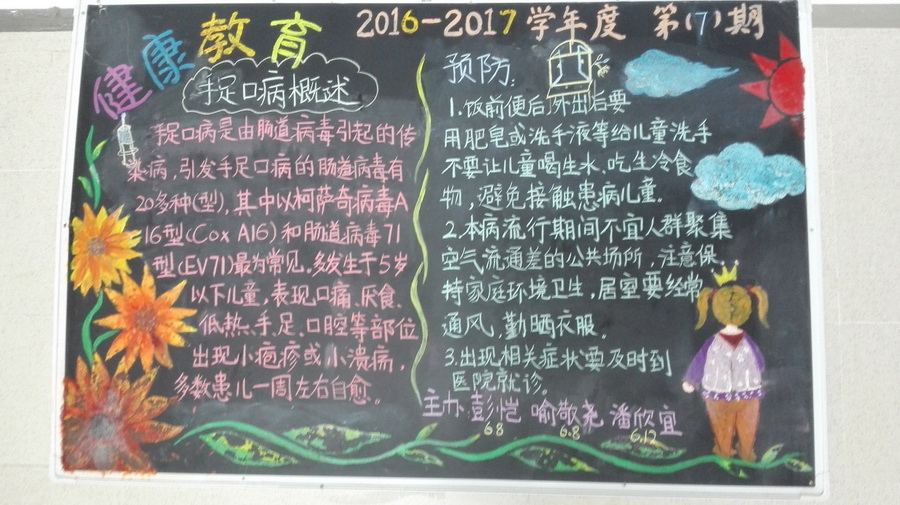 健康教育
2016-2017学年度 第(7)期
手足口病概述
手足口病是由肠道病毒引起的传
染病,引发手足口病的肠道病毒有
20多种(型),其中以柯萨奇病毒A
16型(Cox A16)和肠道病毒71
型(EV71)最为常见.多发生于5岁
以下儿童,表现口痛、厌食、
低热、手、足、口腔等部位
出现小疱疹或小溃疡,
多数患儿一周左右自愈。
预防:
1.饭前便后,外出后要
用肥皂或洗手液等给儿童洗手
不要让儿童喝生水、吃生冷食
物,避免接触患病儿童.
2.本病流行期间不宜人群聚集
空气流通差的公共场所,注意保
持家庭环境卫生,居室要经常
通风,勤晒衣服
3.出现相关症状要及时到
医院就诊。
主办:彭恺 喻敬尧 潘欣宜
68 6.8 6.12